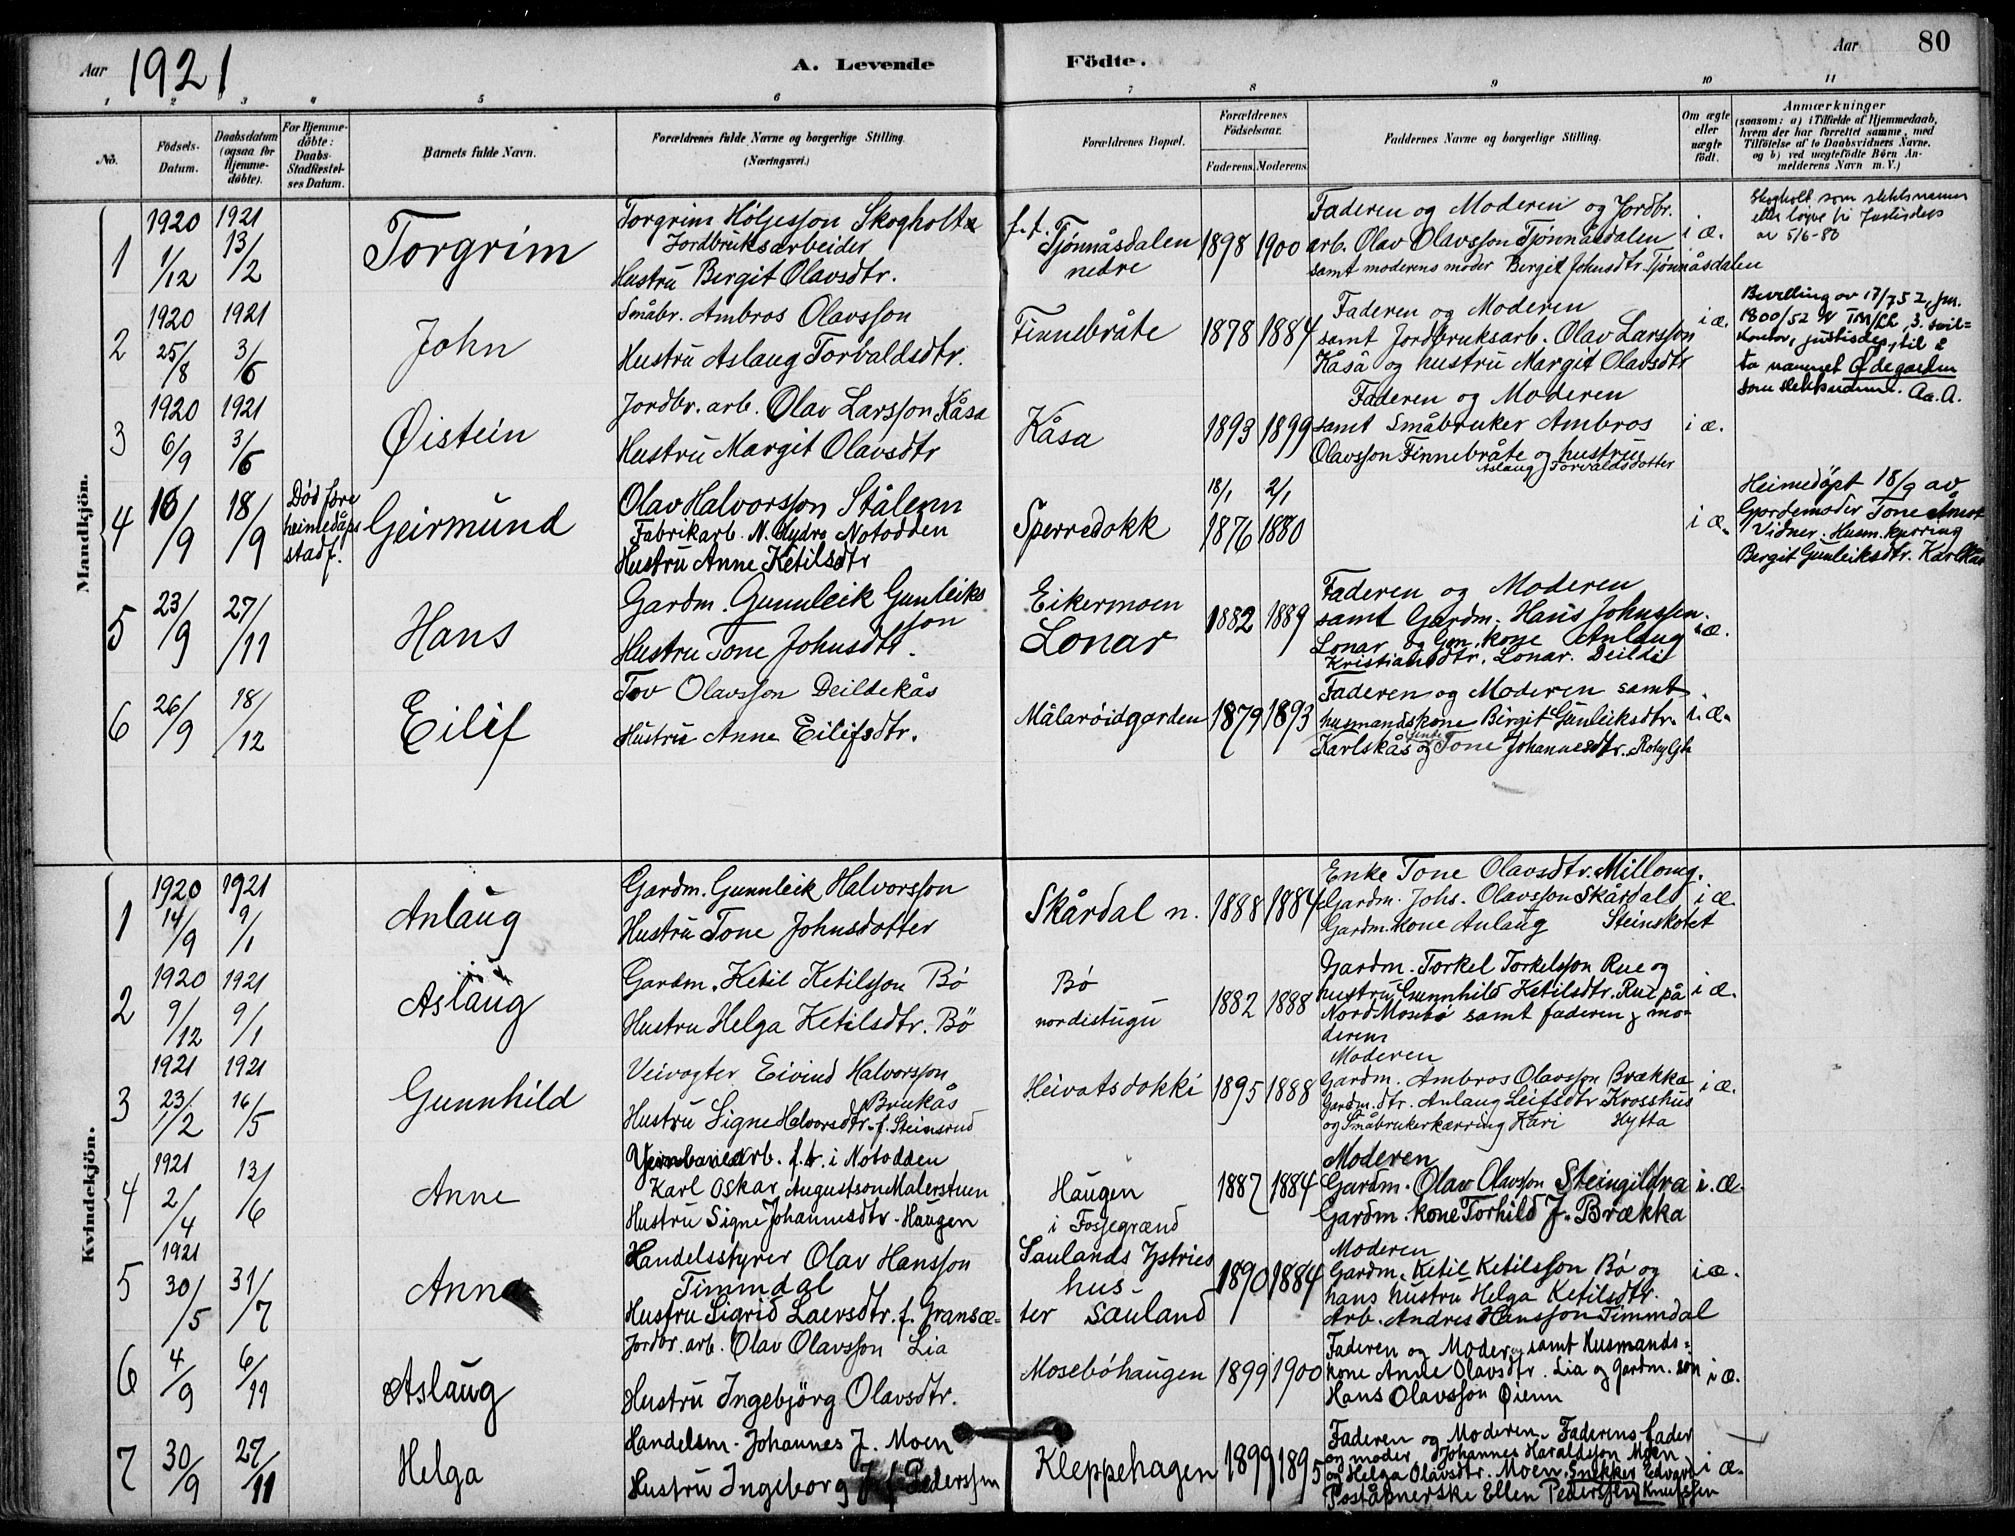 Aar 1921
A. Levende Fødte.
Aar
80
1 2 3 4 5 6 7 8 9 10 11
No.
Fødsels-Datum.
Daabsdatum (ogsaa for Hjemme-døbte).
For Hjemme-døbte: Daabs-Stadfæstel-ses Datum.
Barnets fulde Navn.
Forældrenes fulde Navne og borgerlige Stilling. (Næringsvei.)
Forældrenes Bopæl.
Forældrenes Fødselsaar.
Faderens. Moderens.
Faddernes Navne og borgerlige Stilling.
Om ægte eller uægte født.
Anmærkninger
(saasom: a) i Tilfælde af Hjemmedaab, hvem der har forrettet samme, med Tilføielse af to Daabsvidners Navne, og b) ved uægtefødte Børn An-melderens Navn m. V.)
Mandkjön.
1
1920 1/12
1921 13/2
Torgrim
Torgrim Høljesson Skogholt
Jordbruksarbeider
Hustru Bergit Olavsdtr.
f.t. Tjønnåsdalen
nedre
1898 1900
Faderen og Moderen og Jordbr.
arb. Olav Olavsson Tjønnåsdalen
samt moderens moder Bergit Johnsdtr. Tjønnåsdalen
i æ.
Skogholt som slektsnavn
etter løyve fr Justisdep
av 5/6-80
2
1920 25/8
1921 3/5
John
Småbr. Ambros Olavsson
Hustru Aslaug Torvaldsdtr.
Finnebråte
1878 1884
Faderen og Moderen
samt Jordbruksarb. Olav Larsson
Kåsa og hustru Margit Olavsdtr
i æ.
Bevilling av 17/7 52, jnr.
1800/52 TM/LL, 3. sivil=
kontor, justisdep, til å
ta navnet Ødegarden
som slektsnavn. Aa. A.
3
1920 6/9
1921 3/5
Øistein
Jordbr. arb. Olav Larsson Kåsa
Hustru Margit Olavsdtr
Kåsa
1893 1899
Faderen og Moderen
samt Småbruker Ambros
Olavsson Finnebråte og hustru
Aslaug Torvaldsdotter
i æ.
4
16/9
18/9
Død før
heimedåps
stadf.
Geirmund
Olav Halvorsson Stålenn
Fabrikarb. N. Hydro Notodden
Hustru Anne Ketilsdtr
Sperredokk
18/1 1876
2/1 1880
i æ.
Heimedöpt 18/9 av
Gjordemoder Tone Åmot
Vidner: Husm. kjerring
Bergit Gunleiksdtr. Karlskås
5
23/9
27/11
Hans
Gardm. Gunnleik Gunleiks
son
Hustru Tone Johnsdtr.
Eikermoen
Lonar
1882 1889
Faderen og Moderen
samt Gardm. Hans Johnssen
Lonar og Gm. kone Anlaug
Kristiansdtr. Lonar. Deildi
i æ.
6
26/9
18/12
Eilif
Tov Olavsson Deildekås
Hustru Anne Eilifsdtr.
Målarøidgarden
1879 1893
Faderen og Moderen samt
husmandskone Birgit Gunleiksdtr.
Karlskås og Tone Johannesdtr.
i æ.
Kvindekjön.
1
1920 14/9
1921 9/1
Anlaug
Gardm. Gunnleik Halvorsson
Hustru Tone Johnsdotter
Skårdal n.
1888 1884
Enke Tone Olavsdtr. Millomg.
Gardm. Johs. Olavsson Skårdal
Gardm. Kone Anlaug Steinskotet
i æ.
2
1920 9/12
1921 9/1
Aslaug
Gardm. Ketil Ketilsson Bö
Hustru Helga Ketilsdtr. Bö
Bö
nordistugu
1882 1888
Gardm. Torkel Torkelsson Rue og
hustru Gunnhild Ketilsdtr. Rue på
Nord Mosebö samt faderen & mo-
deren
i æ.
3
1921 23/2
1921 16/5
Gunnhild
Veivogter Eivind Halvorsson
Brukås
Hustru Signe Halvorsdtr. f. Steinsrud
Heivatsdokki
1895 1888
Moderen
Gardm. Ambros Olavsson Brækka
Gardm. dtr. Anlaug Leifsdtr Krosshus
og Småbrukerkærring Kari Hytta
i æ.
4
1921 2/4
13/6
Anne
Jernbanearb. f.t. i Notodden
Karl Oskar Augustson Malerstuen
Hustru Signe Johannesdtr. Haugen
Haugen
i Fossegrænd
1887 1884
Moderen
Gardm. Olav Olavson Steingildra
Gardm. kone Torhild J. Brækka
i æ.
5
1921 30/5
31/7
Anna
Handelsstyrer Olav Hansson
Timmdal
Hustru Sigrid Laevsdtr. f. Gransæ-
ter
Saulands Ystries
hus-
Sauland
1890 1884
Moderen
Gardm. Ketil Ketilsson Bö og
hans hustru Helga Ketilsdtr.
Arb. Andres Hansson Timmdal
i æ.
6
4/9
6/11
Aslaug
Jordbr. arb. Olav Olavsson Lia
Hustru Ingebjörg Olavsdtr.
Mosebóhaugen
1899 1900
Faderen og Moder samt Husmands=
kone Anne Olavsdtr. Lia og Gardm. søn
Hans Olavsson Øienn
i æ.
7
30/9
27/11
Helga
Handelsm. Johannes J. Moen
Hustru Ingeborg f. Pederssen
Kleppehagen
1899 1895
Faderen og Moderen. Faderens fader
og moder Johannes Haraldsson Moen
og Helga Olavsdtr. Moen. Snekker Edvard
Poståpnerske Ellen Pederssen Knutssen
i æ.